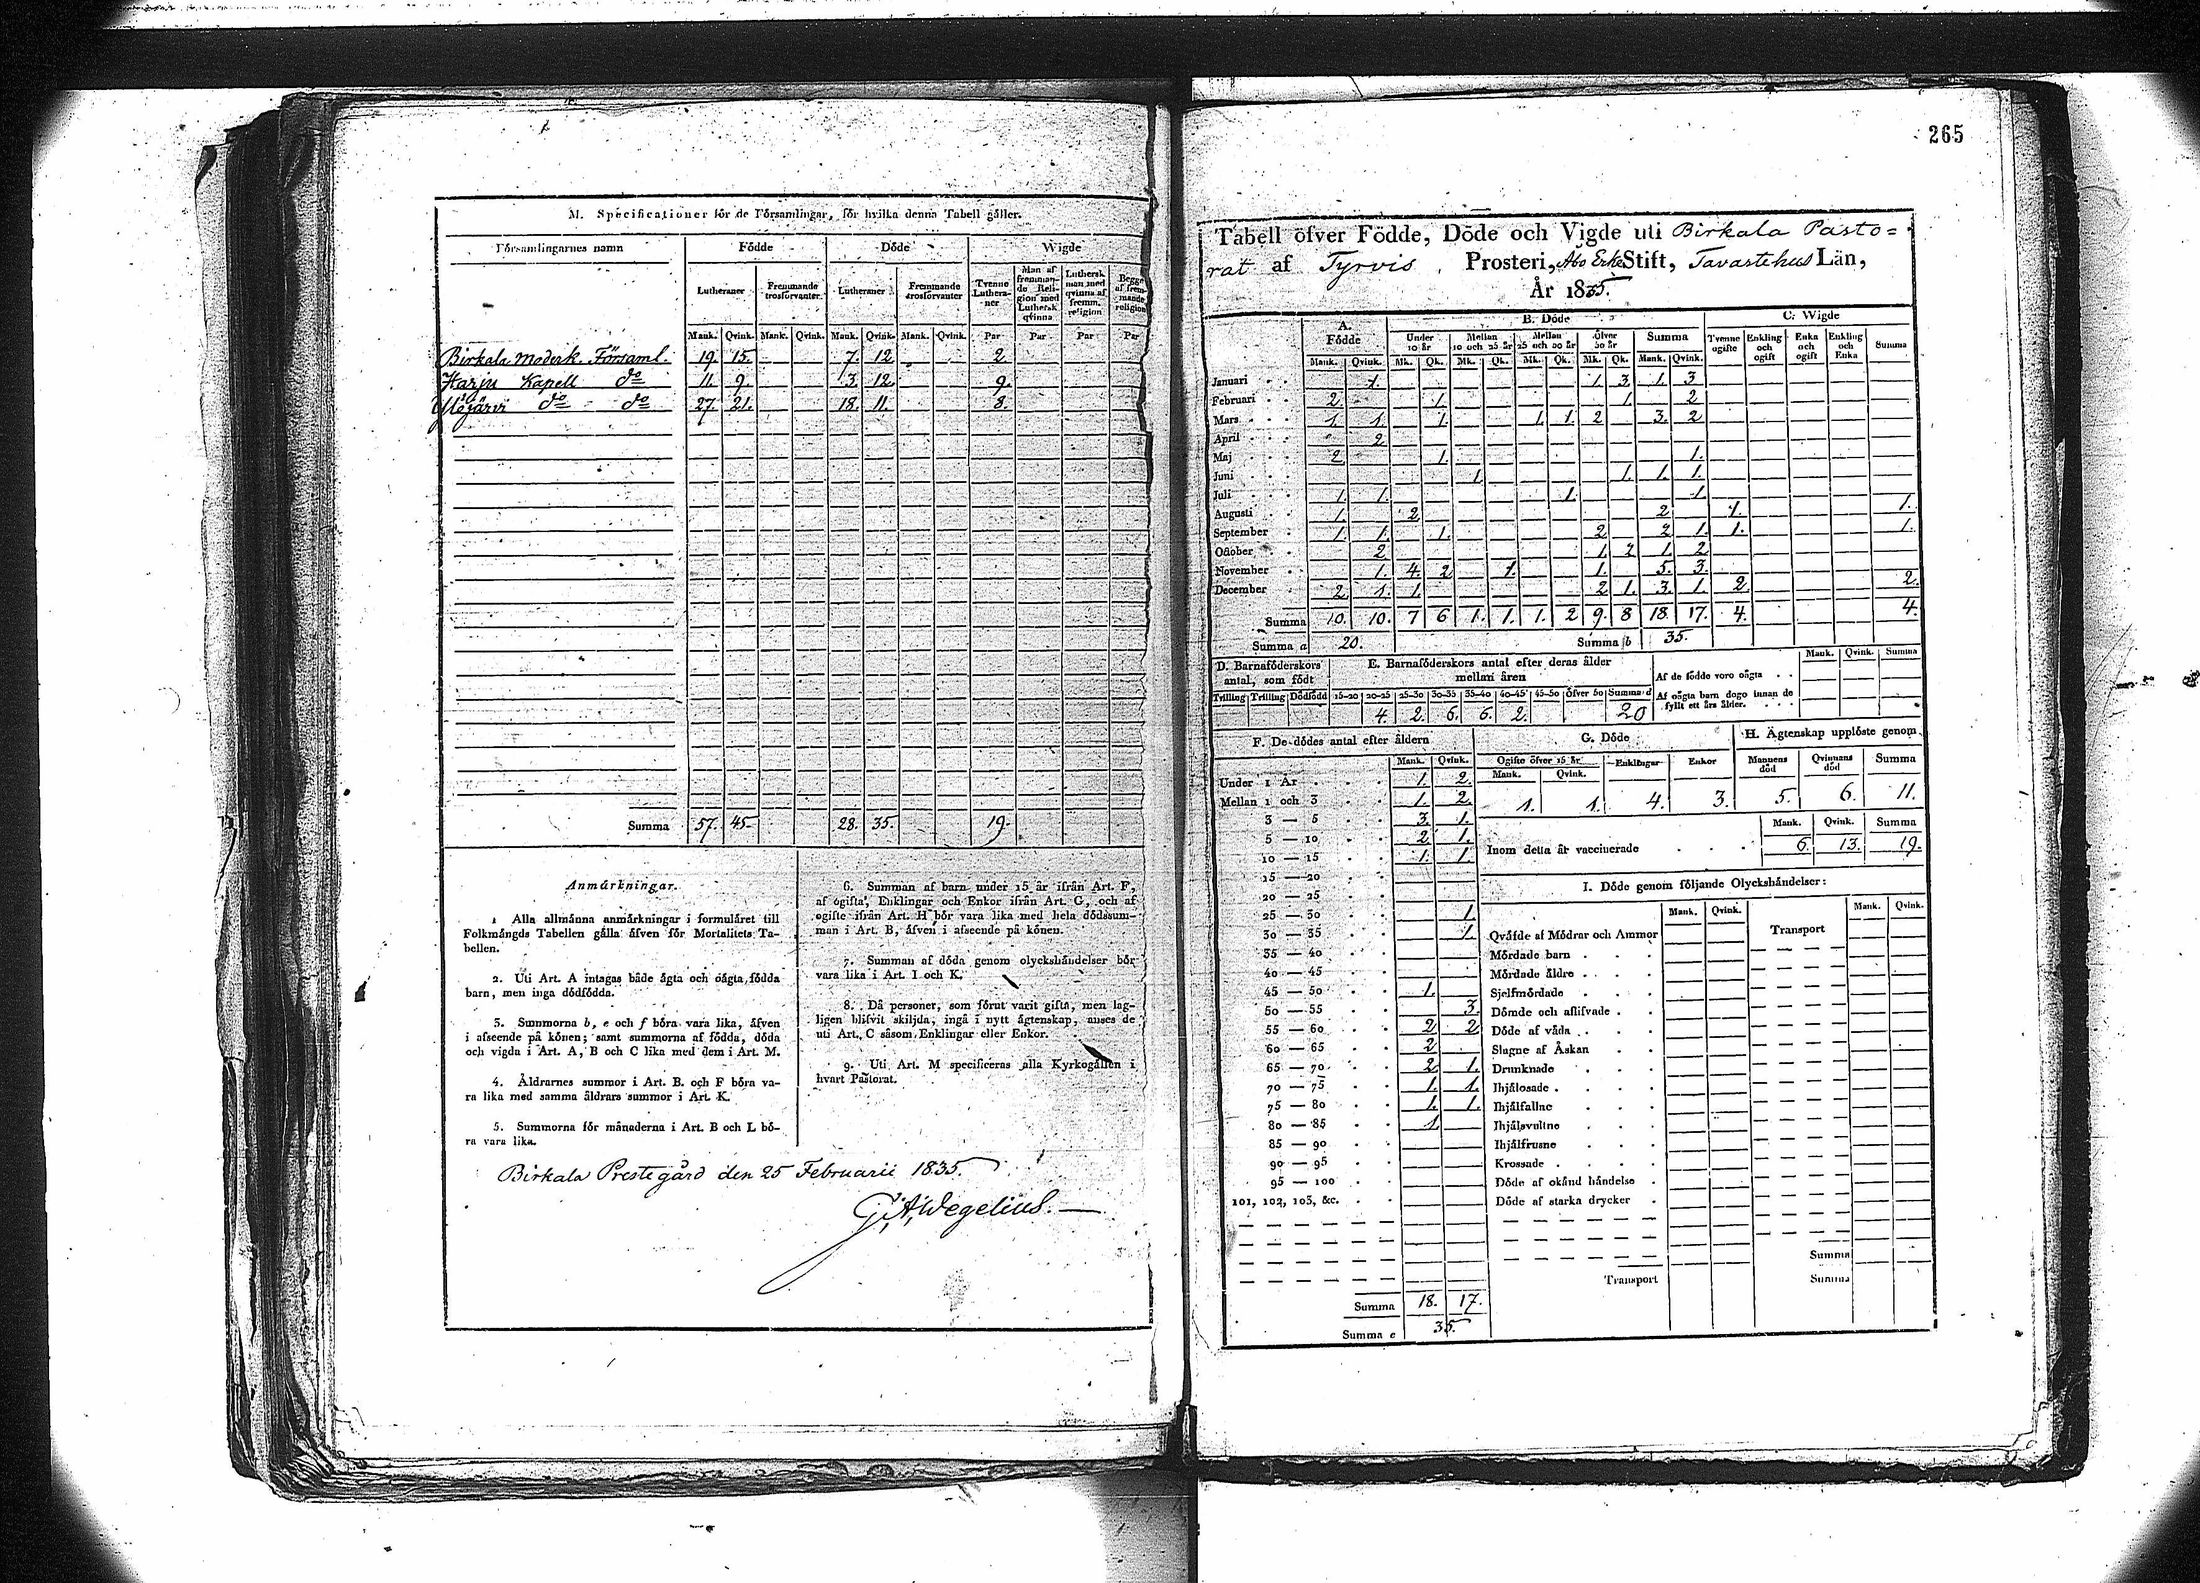 265
M. Specificationer för de Församlingar, för hvilka denna Tabell gäller.
Församlingarnes namn Födde Döde Wigde
Lutheraner Fremmande trosförvanter Lutheraner Fremmande trosförvanter Tvenne Lutheraner Man af fremmande Religion med Luthersk qvinna Luthersk man med qvinna af fremm. religion Begge af fremmande religion
Mank. Qvink. Mank. Qvink. Mank. Qvink. Mank. Qvink. Par Par Par Par
Birkala moderk. Församl. 19. 15. 7. 12. 2.
Harju Kapell do 11. 9. 3. 12. 9.
Ylöjärvi do do 27. 21. 18. 11. 8.
Summa 57. 45. 28. 35. 19.
Anmärkningar.
1 Alla allmänna anmärkningar i formuläret till
Folkmängds Tabellen gälla äfven för Mortalitets Ta-
bellen.
2. Uti Art. A intagas både ägta och oägta födda
barn, men inga dödfödda.
3. Summorna b, e och f böra vara lika, äfven
i afseende på könen; samt summorna af födda, döda
och vigda i Art. A, B och C lika med dem i Art. M.
4. Åldrarnes summor i Art. B. och F böra va-
ra lika med samma åldrars summor i Art. K.
5. Summorna för månaderna i Art. B och L bö-
ra vara lika.
6. Summan af barn under 15 år ifrån Art. F,
af ogifta, Enklingar och Enkor ifrån Art. G, och af
ogifte ifrån Art. H bör vara lika med hela dödssum-
man i Art. B, äfven i afseende på könen.
7. Summan af döda genom olyckshändelser bör
vara lika i Art. I och K.
8. Då personer, som förut varit gifta, men lag-
ligen blifvit skiljda, ingå i nytt ägtenskap, anses de
uti Art. C såsom Enklingar eller Enkor.
9. Uti Art. M specificeras alla Kyrkogällen i
hvart Pastorat.
Birkala Prestegård den 25 Februarii 1835.
G. A. Wegelius.
Tabell öfver Födde, Döde och Vigde uti Birkala Pasto=
rat af Tyrvis Prosteri, Åbo Erke Stift, Tavastehus Län,
År 1835.
A. Födde B. Döde C. Wigde
Under 10 år Mellan 10 och 25 år Mellan 25 och 50 år Öfver 50 år Summa Tvenne ogifte Enkling och ogift Enka och ogift Enkling och Enka Summa
Mank. Qvink. Mk. Qk. Mk. Qk. Mk. Qk. Mk. Qk. Mank. Qvink.
Januari 1. 1. 3. 1. 3
Februari 2. 1. 1. 2
Mars 1. 1. 1. 1. 1. 2 3. 2
April 2
Maj 2. 1. 1.
Juni 1. 1. 1. 1.
Juli 1. 1. 1. 1
Augusti 1. 2 2 1. 1.
September 1. 1. 1. 2 2 1. 1. 1.
October 2 1. 2 1. 2
November 1. 4. 2 1. 1. 5. 3.
December 2. 1. 1. 2 1. 3. 1. 2. 2.
Summa 10. 10. 7 6 1. 1. 1. 2 9. 8 18. 17. 4. 4.
Summa a 20. Summa b 35.
D. Barnaföderskors antal, som födt
Trilling Trilling Dödfödd
E. Barnaföderskors antal efter deras ålder mellan åren
15-20 20-25 25-30 30-35 35-40 40-45 45-50 Öfver 50 Summa d
4. 2. 6. 6. 2. 20
Mank. Qvink. Summa
Af de födde voro oägta
Af oägta barn dogo innan de
fyllt ett års ålder.
F. De dödes antal efter åldern
Mank. Qvink.
Under 1 År 1. 2.
Mellan 1 och 3 1. 2.
3 — 5 3. 1.
5 — 10 2 1.
10 — 15 1. 1.
15 — 20
20 — 25
25 — 30 1.
30 — 35 1.
35 — 40
40 — 45
45 — 50 1.
50 — 55 3.
55 — 60 2 2
60 — 65 2
65 — 70 2. 1.
70 — 75 1. 1.
75 — 80 1. 1.
80 — 85 1.
85 — 90
90 — 95
95 — 100
101, 102, 103, &c.
Summa 18. 17.
Summa e 35.
G. Döde
Ogifte öfver 15 år Enklingar Enkor
Mank. Qvink.
1. 1. 4. 3.
H. Ägtenskap upplöste genom
Mannens död Qvinnans död Summa
5. 6. 11.
Mank. Qvink. Summa
Inom detta år vaccinerade 6. 13. 19.
I. Döde genom följande Olyckshändelser:
Mank. Qvink. Transport Mank. Qvink.
Qväfde af Mödrar och Ammor
Mördade barn
Mördade äldre
Sjelfmördade
Dömde och aflifvade
Döde af våda
Slagne af Åskan
Drunknade
Ihjälosade
Ihjälfallne
Ihjälsvultne
Ihjälfrusne
Krossade
Döde af okänd händelse
Döde af starka drycker
Transport
Summa
Summa